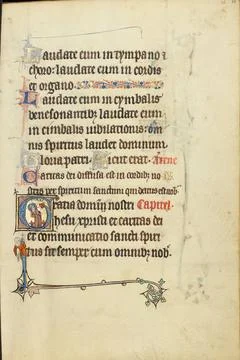 Laudate eum in tympano ⁊
choro: laudate eum in cordis
et organo.
Laudate eum in cymbalis
benesonantibus laudate eum
in cimbalis iubilationis: om
nis spiritus laudet dominum.
Gloria patri. Sicut erat. Ane
Caritas dei diffusa est in cordib; no
stris per spiritum sanctum qui datus est nob
Gracia domini nostri Capitel.
ihesu xpristi et caritas dei
et communicatio sancti spiri
tus sit semper cum omnib; nob.